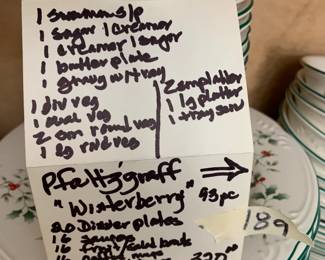 1 snowman s/p
1 sugar/creamer
1 creamer/sugar
1 butter plate
1 gravy w/tray
1 div veg
1 oval veg
2 sm round veg
1 lg rnd veg
2 sm platter
1 lg platter
1 tray
Pfaltzgraff
"Winterberry" 93 pc
20 Dinner plates
16
16 bowls
16 mugs
189